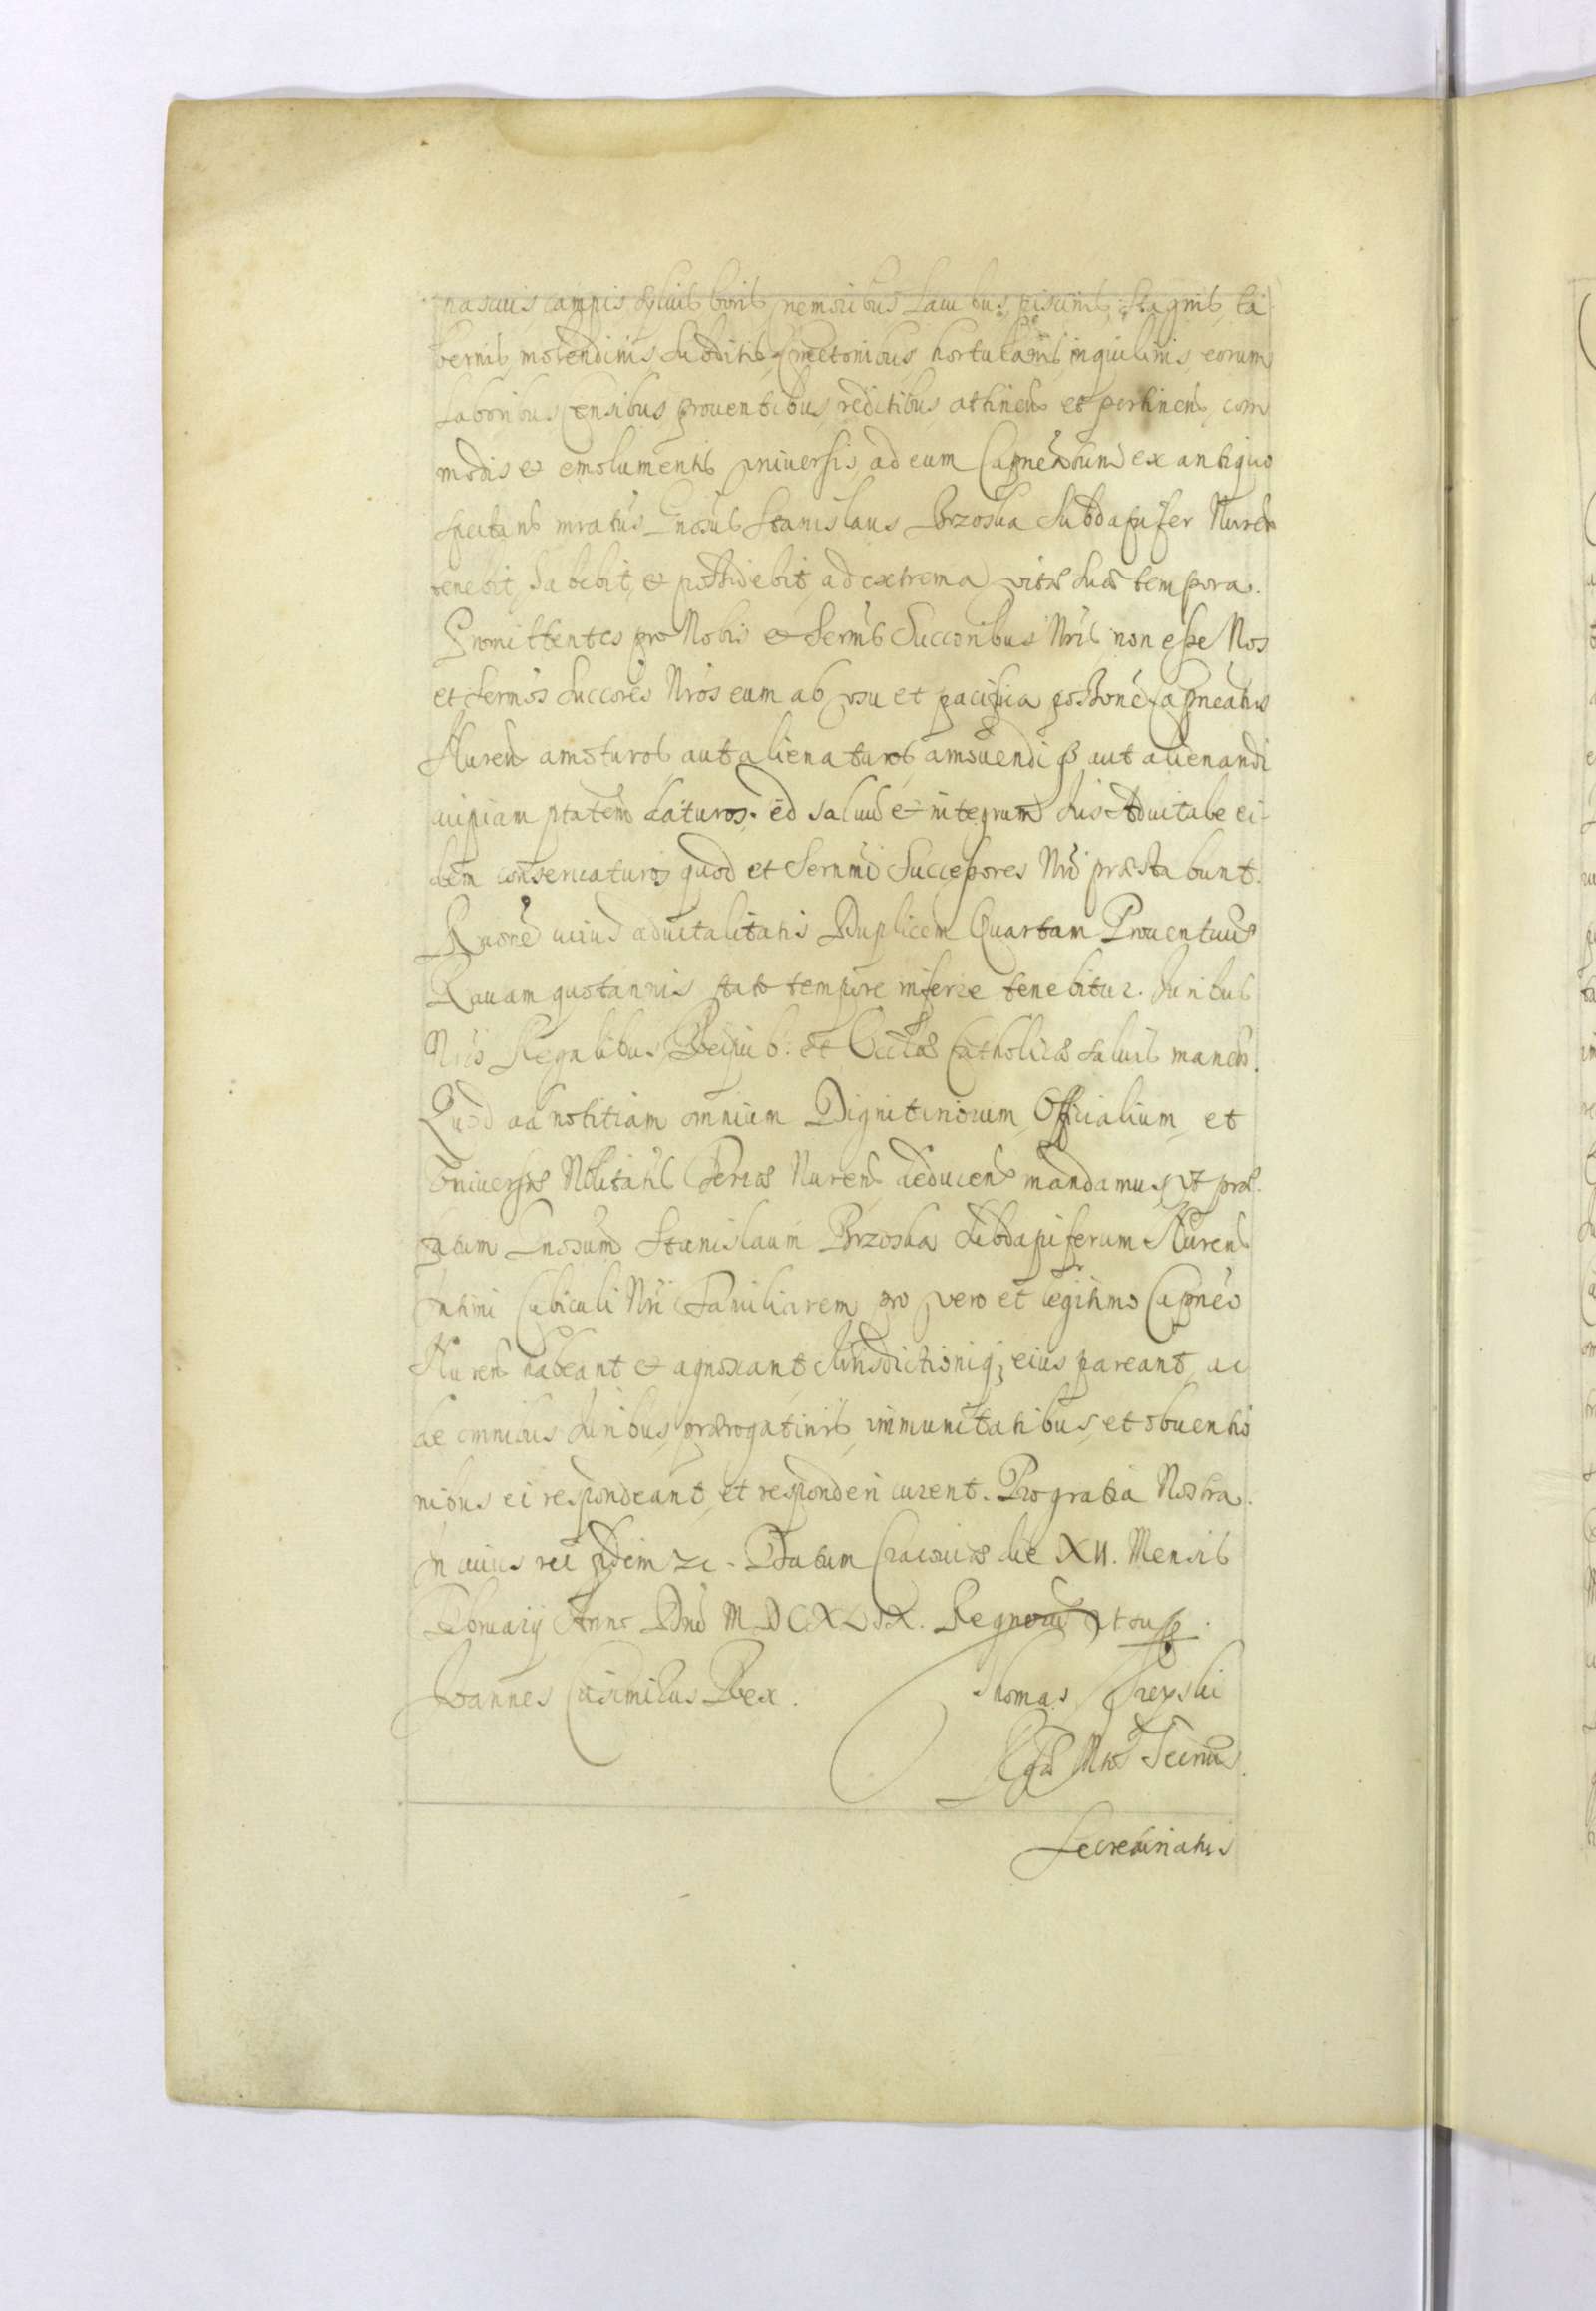 pascuis campis syluis boris nemoribus Lacubus, piscinis, Stagnis, ta-
bernis, molendinis, Subditis, Cmetonibus, hortulanis, inquilinis, eorum
Laboribus, Censibus, prouentibus, reditibus, attinen et pertinen, com
modis et emolumentis vniuersis, ad eum Capneatum ex antiquo
spectans mratus Gnosus Stanislaus Brzoska Subdapifer Nuren
tenebit, habebit, et possidebit ad extrema vitæ suæ tempora.
Promittentes pro Nobis et Sermis Succoribus Nris non esse Nos
et Sermos Succores Nros eum ab vsu et pacifica possone Capneatus
Nuren amoturos aut alienaturos, amouendi q aut alienandi
cuipiam ptatem daturos. Sed saluu et integrum Ius Aduitale ei-
dem conseruaturos quod et Sermi Successores Nri præstabunt.
Raone cuius aduitalitatis Duplicem Quartam Prouentuu
Rauam quotannis stato tempore inferre tenebitur. Iuribus
Nris Regalibus, Reipub. et Ecclæ Catholicæ saluis manen.
Quod ad notitiam omnium Dignitariorum, Officialium, et
Vniuersæ Nobilitatis Terræ Nuren deducen mandamus, vt præ-
fatum Gnosum Stanislaum Brzoska Subdapiferum Nuren
Intimi Cubiculi Nri Familiarem pro vero et legitimo Capneo
Nuren habeant et agnoscant Iurisdictioniq; eius pareant, ac
de omnibus Iuribus, prærogatiuis, immunitatibus, et obuentio
nibus ei respondeant, et responderi curent. Pro gratia Nostra.
In cuius rei fidem &c. Datum Cracouiæ die XII. Mensis
Februarij Anno Dni MDCXLIX. Regnoru vt sup.
Ioannes Casimirus Rex. Thomas
Rgæ Mtis Secrius
Secretariatus